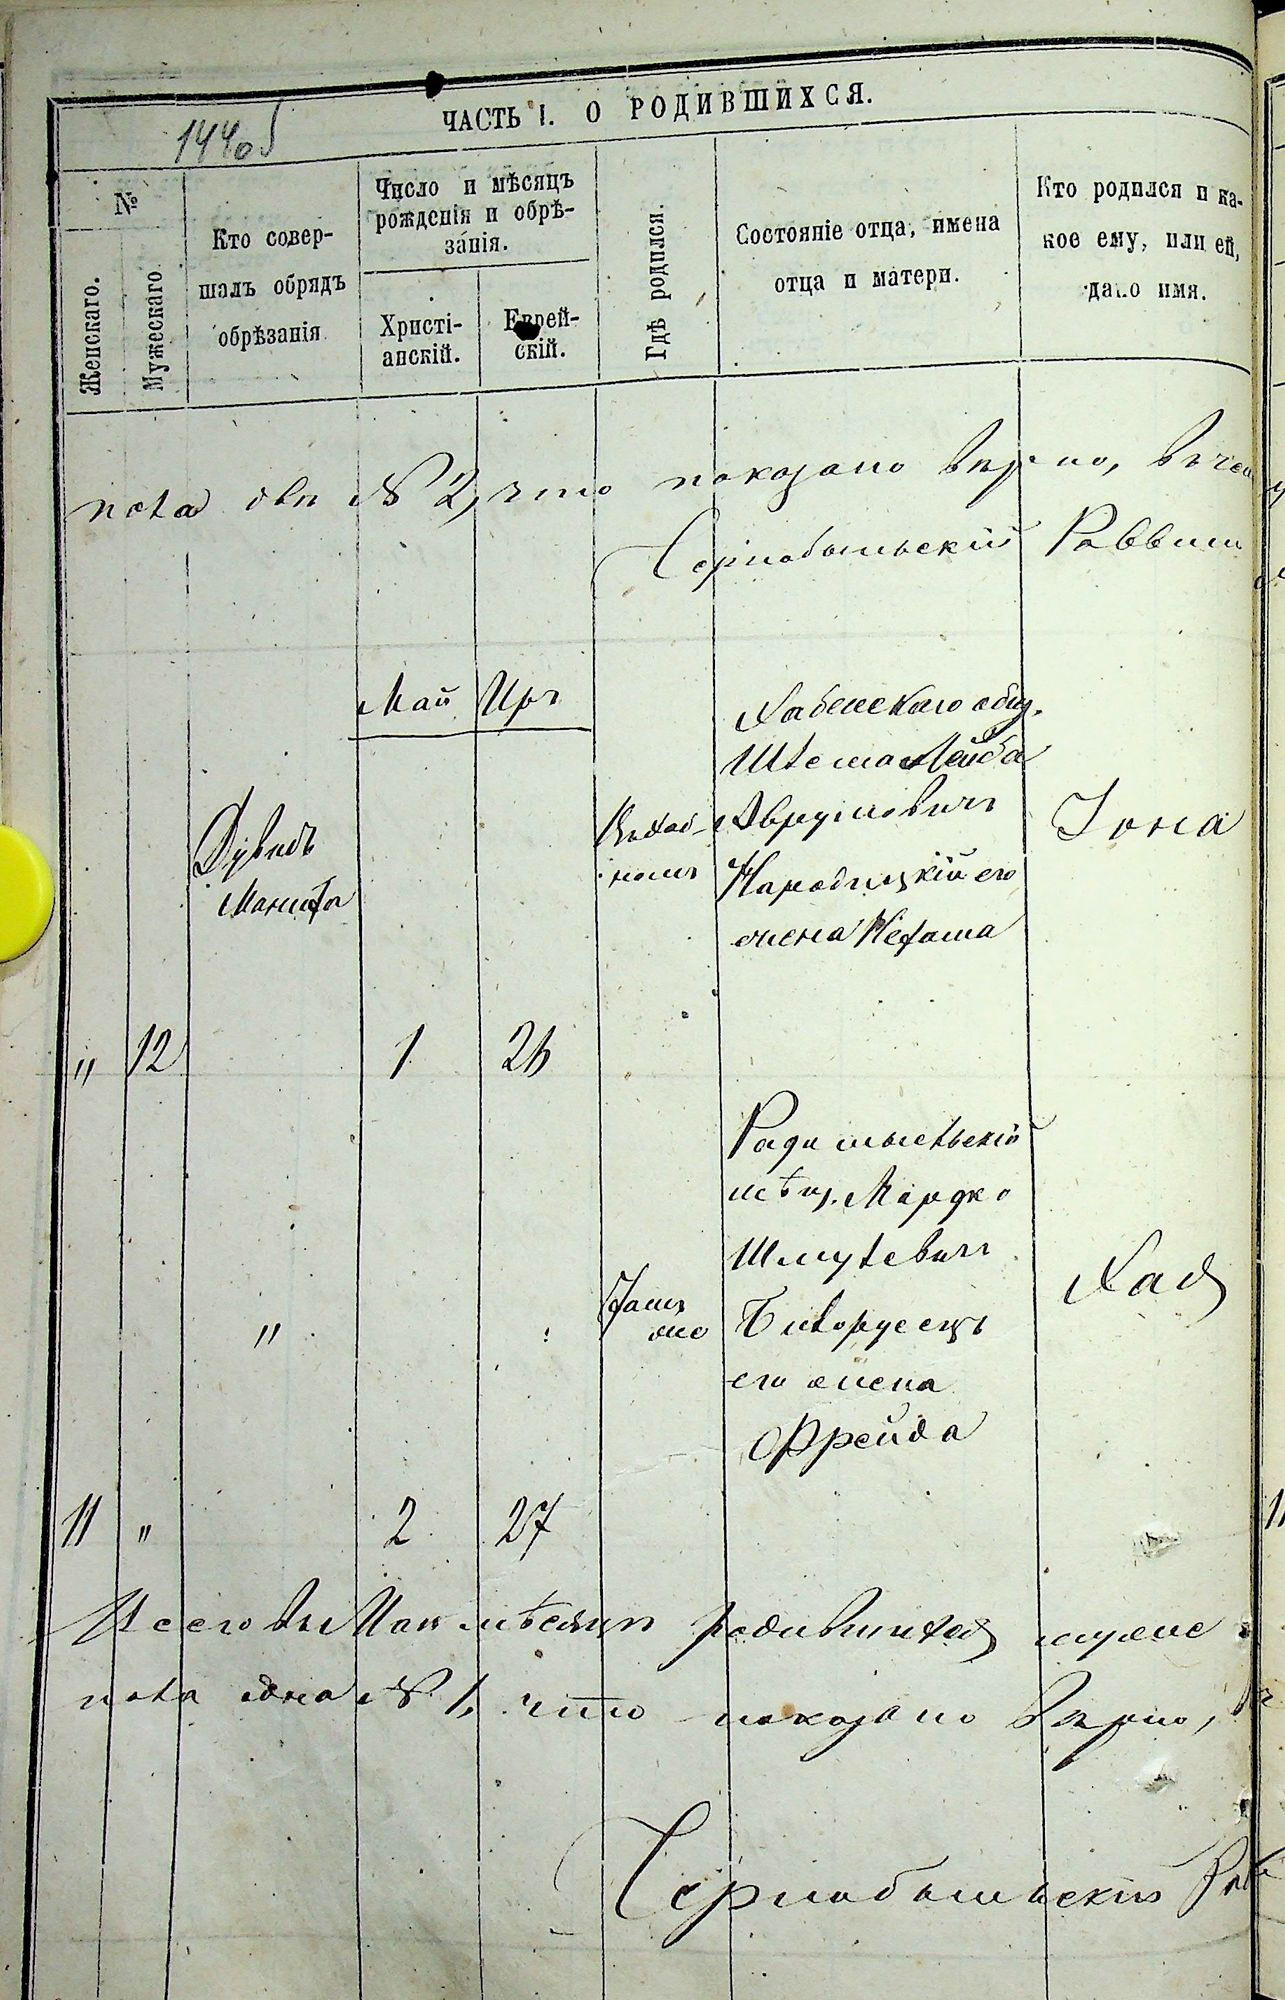 144об
ЧАСТЬ I. О РОДИВШИХСЯ.
№
Женскаго.
Мужескаго
Кто совер-
шалъ обрядъ
обрѣзанія
Число и мѣсяцъ
рожденія и обрѣ-
занія.
Христі-
анскій.
Еврей-
скій.
Гдѣ родился.
Состояніе отца, имена
отца и матери.
Кто родился и ка-
кое ему, или ей,
дано имя.
пола двѣ № 2, что показано вѣрно, въ чем
Чернобыльскій Раввин
Май Иръ
Хабенскаго общ.
Шлема Лейба
Аврумовичъ
Народицкій его
жена Нехама
Дувидъ
Въ Хаб-
номъ
Іона
" 12 1 26
Радомысльскій
мѣщ. Мордко
Шмулевичъ
Бѣлорусецъ
его жена
Фрейда
"
Тамъ
же
Хая
11 " 2 27
Всего въ Маѣ мѣсяцѣ родившихся муже
пола одна № 1, что показано вѣрно,
Чернобыльскій Рав